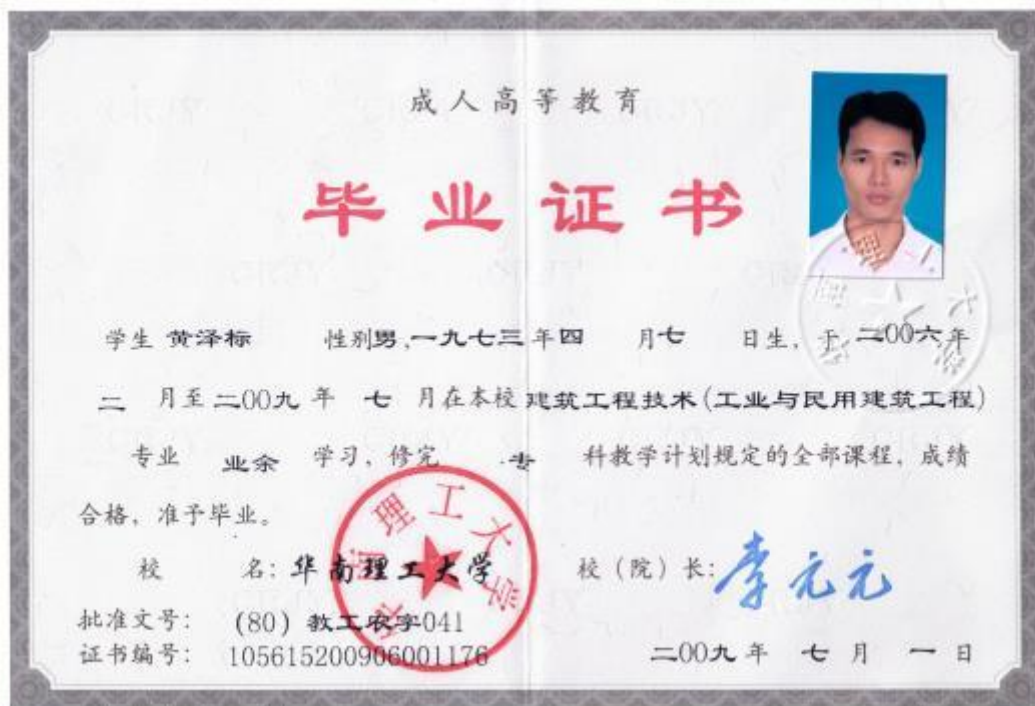 成人高等教育
毕业证书
学生 黄泽标 性别男,一九七三年四 月七 日生，于 二00六年
二 月至二00九 年 七 月在本校 建筑工程技术(工业与民用建筑工程)
专业 业余 学习，修完 专 科教学计划规定的全部课程，成绩
合格，准予毕业。
校 名：华南理工大学 校（院）长：李元元
批准文号： (80) 教工农字041
证书编号： 105615200906001176 二00九 年 七 月 一 日
华南理工大学